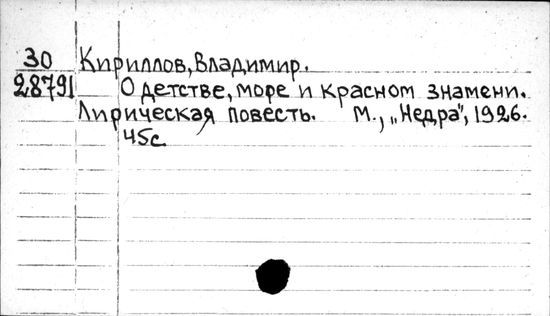 30 Кириллов, Владимир.
28791 О детстве, море и красном знамени.
Лирическая повесть. М., „Недра", 1926.
45с.